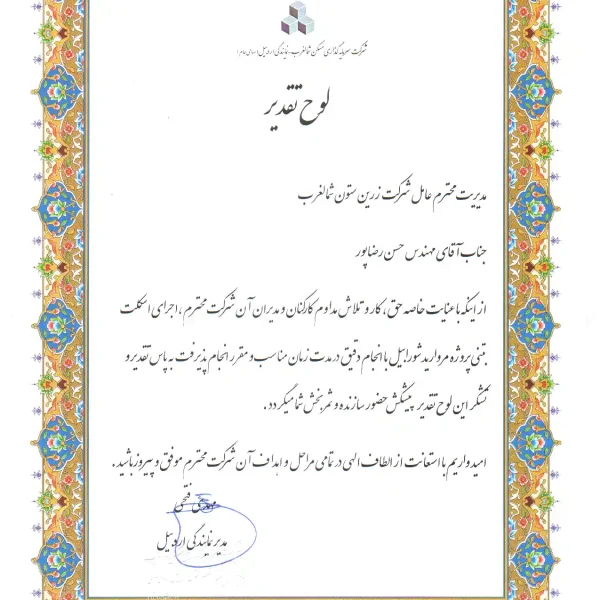 شرکت سرمایه گذاری مسکن شمالغرب، نمایندگی اردبیل (سهامی عام)
لوح تقدیر
مدیریت محترم عامل شرکت زرین ستون شمالغرب
جناب آقای مهندس حسن رضاپور
از اینکه با عنایت خاصه حق، کار و تلاش مداوم کارکنان و مدیران آن شرکت محترم، اجرای اسکلت
بتنی پروژه مروارید شورابیل با انجام دقیق در مدت زمان مناسب و مقرر انجام پذیرفت به پاس تقدیر و
تشکر این لوح تقدیر پیشکش حضور سازنده و ثمربخش شما میگردد.
امیدواریم با استعانت از الطاف الهی در تمامی مراحل و اهداف آن شرکت محترم موفق و پیروز باشید.
مهدی فتحی
مدیر نمایندگی اردبیل